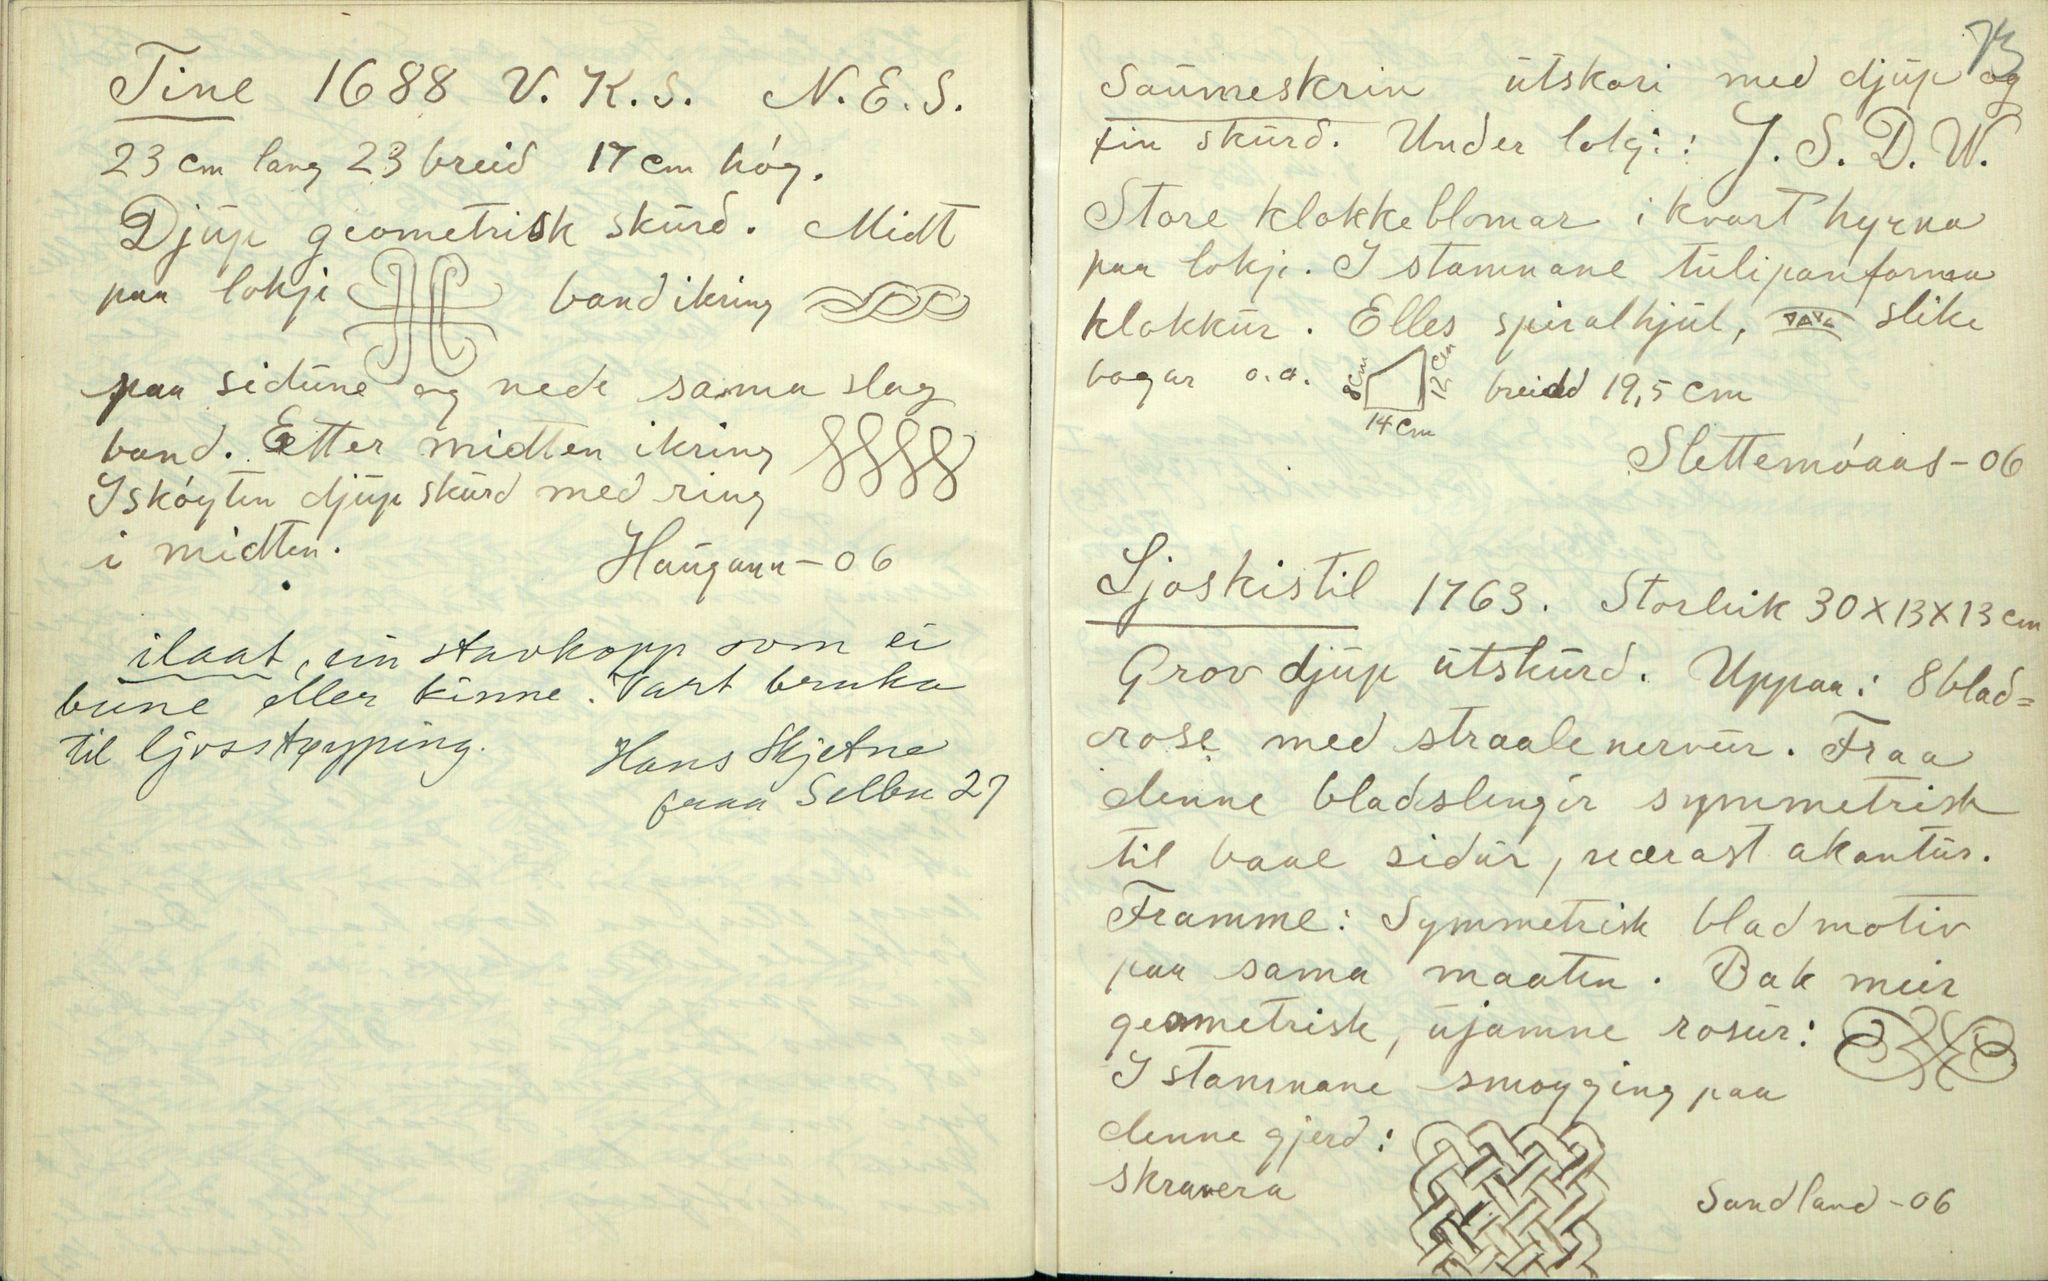 Tine 1688 V. K. S. N. E. S.
23 cm lang 23 breid 17 cm høg.
Djup geometrisk skurd. Midt
paa lokji band ikring
paa sidune og nede sama slag
band. Etter midten ikring
I skøyten djup skurd med ring
i midten.
Haugann - 06
ilaat, ein stavkopp som ei
bune eller kinne. Vart bruka
til ljosstøyping.
Hans Skjetne
fraa Selbu 27
73
Saumeskrin utskori med djup og
fin skurd. Under lokji: J. S. D. W.
Store klokkeblomar i kvart hyrna
paa lokji. I stamnane tulipanforma
klokkur. Elles spiralhjul, slike
bogar o.a. 8 cm 12 cm breidd 19,5 cm
14 cm
Slettemøaas - 06
Ljoskistil 1763. Storleik 30 X 13 X 13 cm
Grov djup utskurd. Uppaa: 8 blad=
rose med straalenervur. Fraa
denne bladslengir symmetrisk
til baae sidur, nærast akantus.
Framme: Symmetrisk bladmotiv
paa sama maaten. Bak meir
geometrisk, ujamne rosur:
I stamnane smøyging paa
denne gjerd:
skravera
Sandland - 06